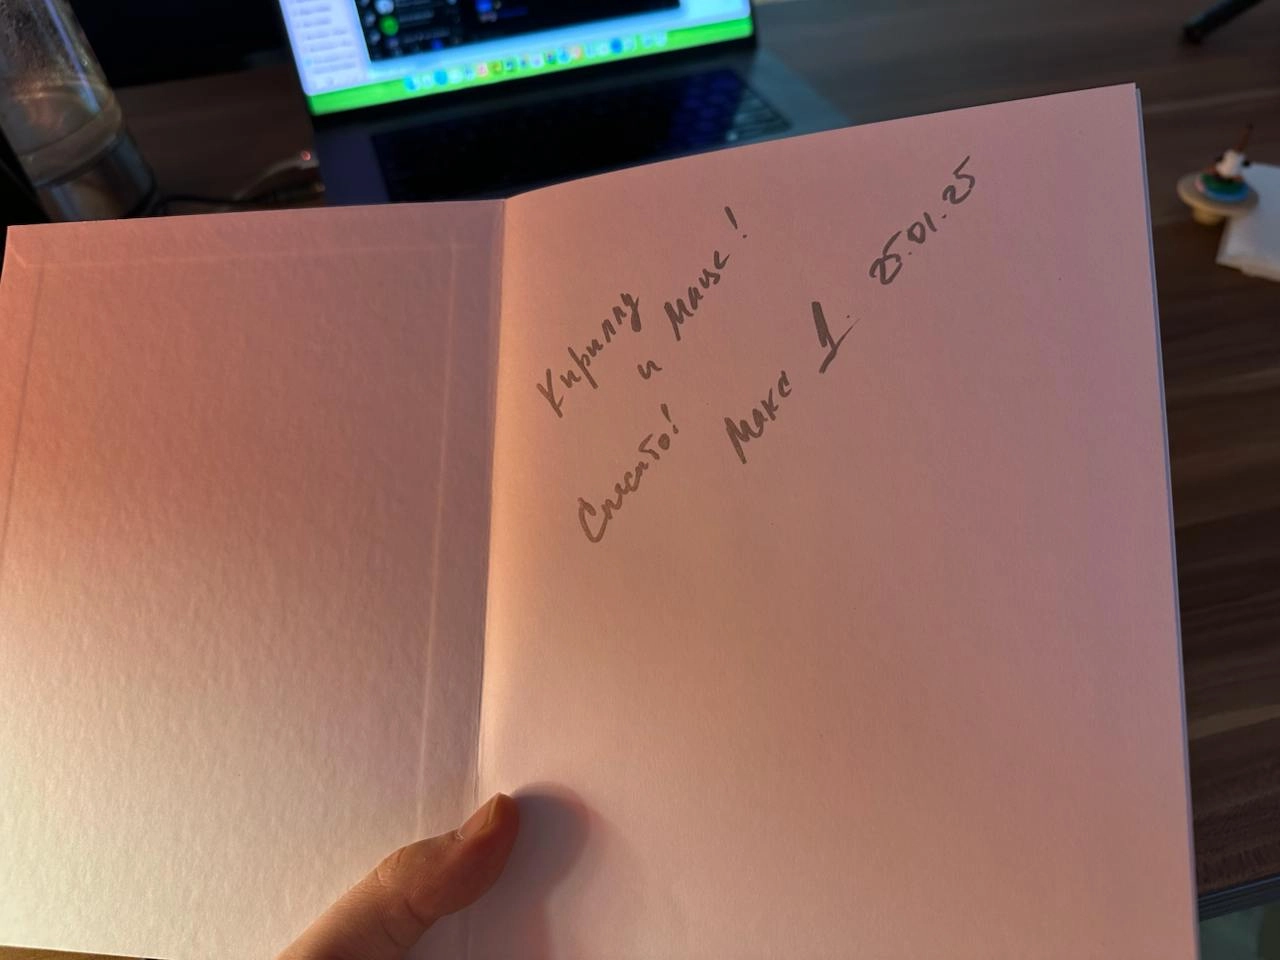 Кириллу
и Маше!
Спасибо!
Макс
25.01.25